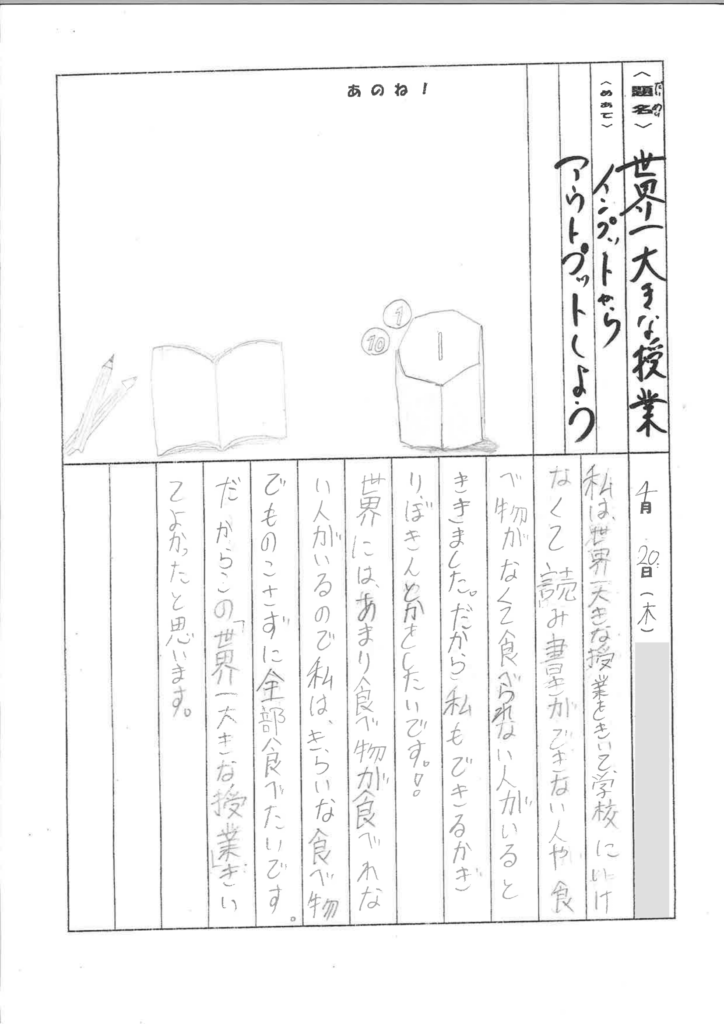 〈題名〉 世界一大きな授業
だいめい
〈めあて〉 インプットから
アウトプットしよう
あのね!
1
10
4月20日(木)
私は、世界一大きな授業をきいて学校にいけ
なくて読み書きができない人や食
べ物がなくて食べられない人がいると
ききました。だから私もできるかぎ
りぼきんとかをしたいです。!!
世界には、あまり食べ物が食べれな
い人がいるので私は、きらいな食べ物
でものこさずに全部食べたいです。
だからこの「世界一大きな授業」きい
てよかったと思います。